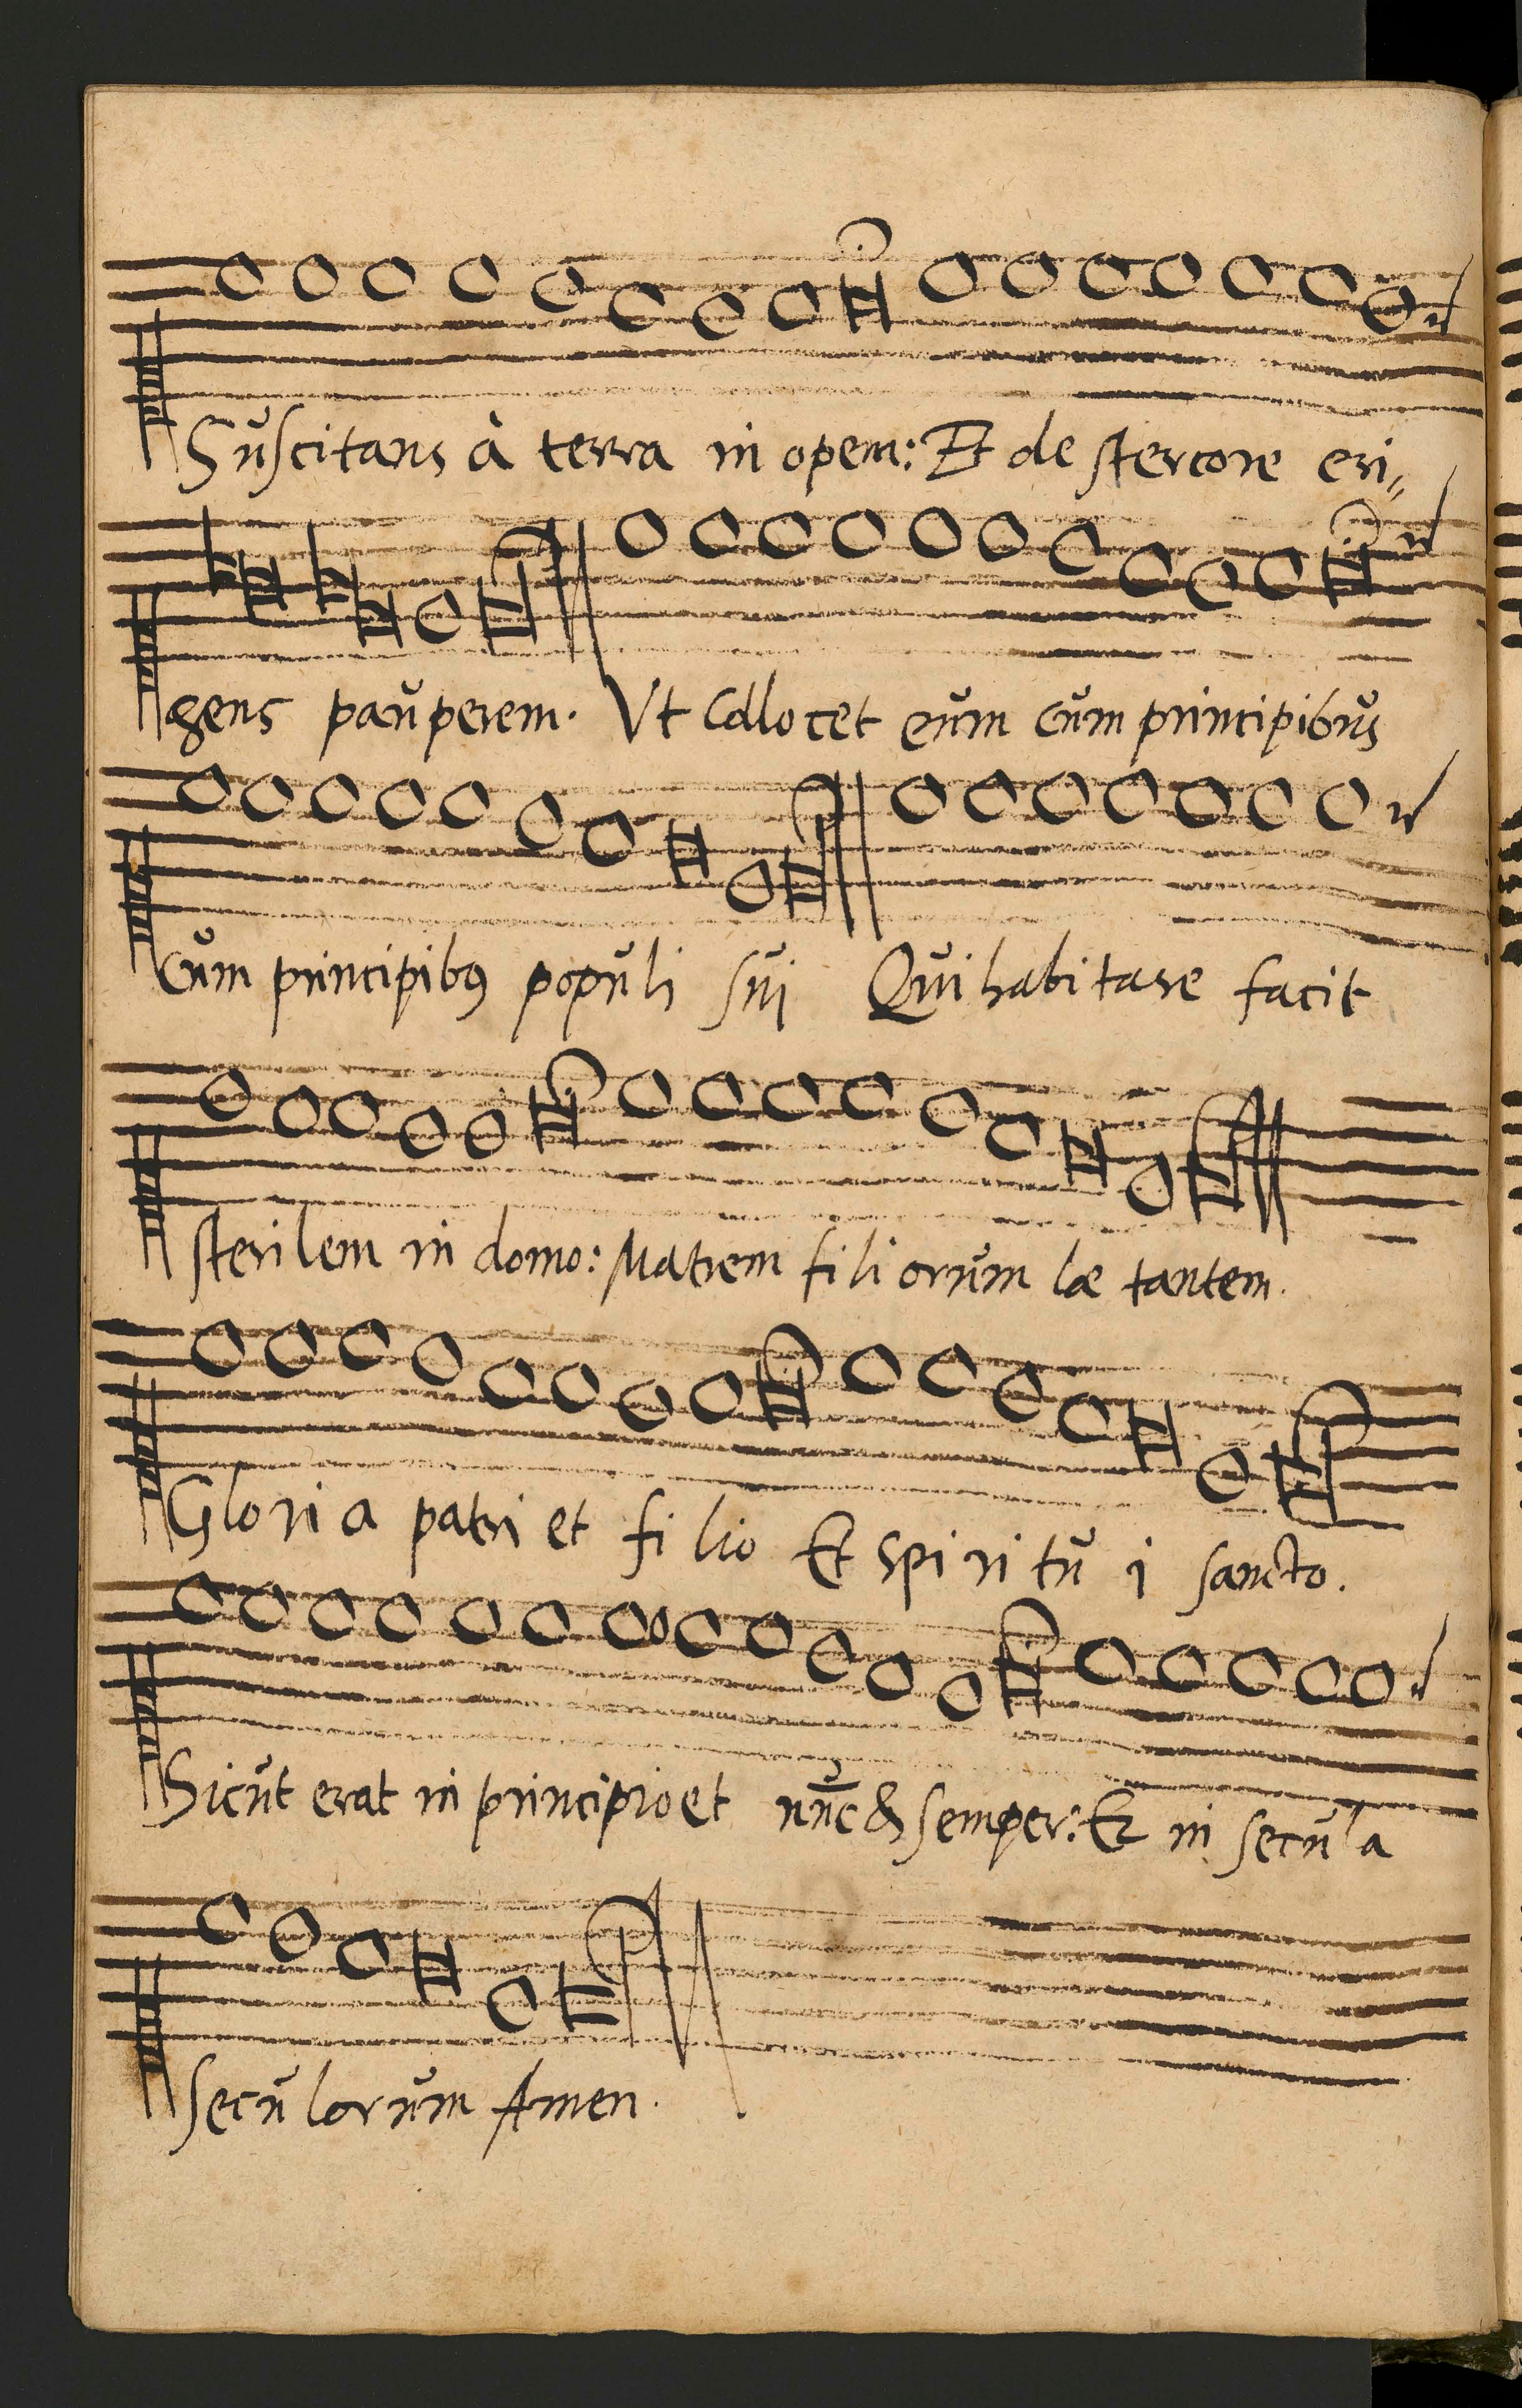 Sŭscitans à terra in opem: Et de stercore eri„
gens paŭperem. Vt Collocet eŭm cŭm principibŭs
Cŭm principibꝰ popŭli sŭi Qŭi habitare facit
sterilem in domo: Matrem fili orŭm læ tantem.
Glori a patri et fi lio Et spi ri tŭ i sancto.
Sicŭt erat in principio et nŭc & semper: Et in secŭla
secŭ lorŭm Amen.